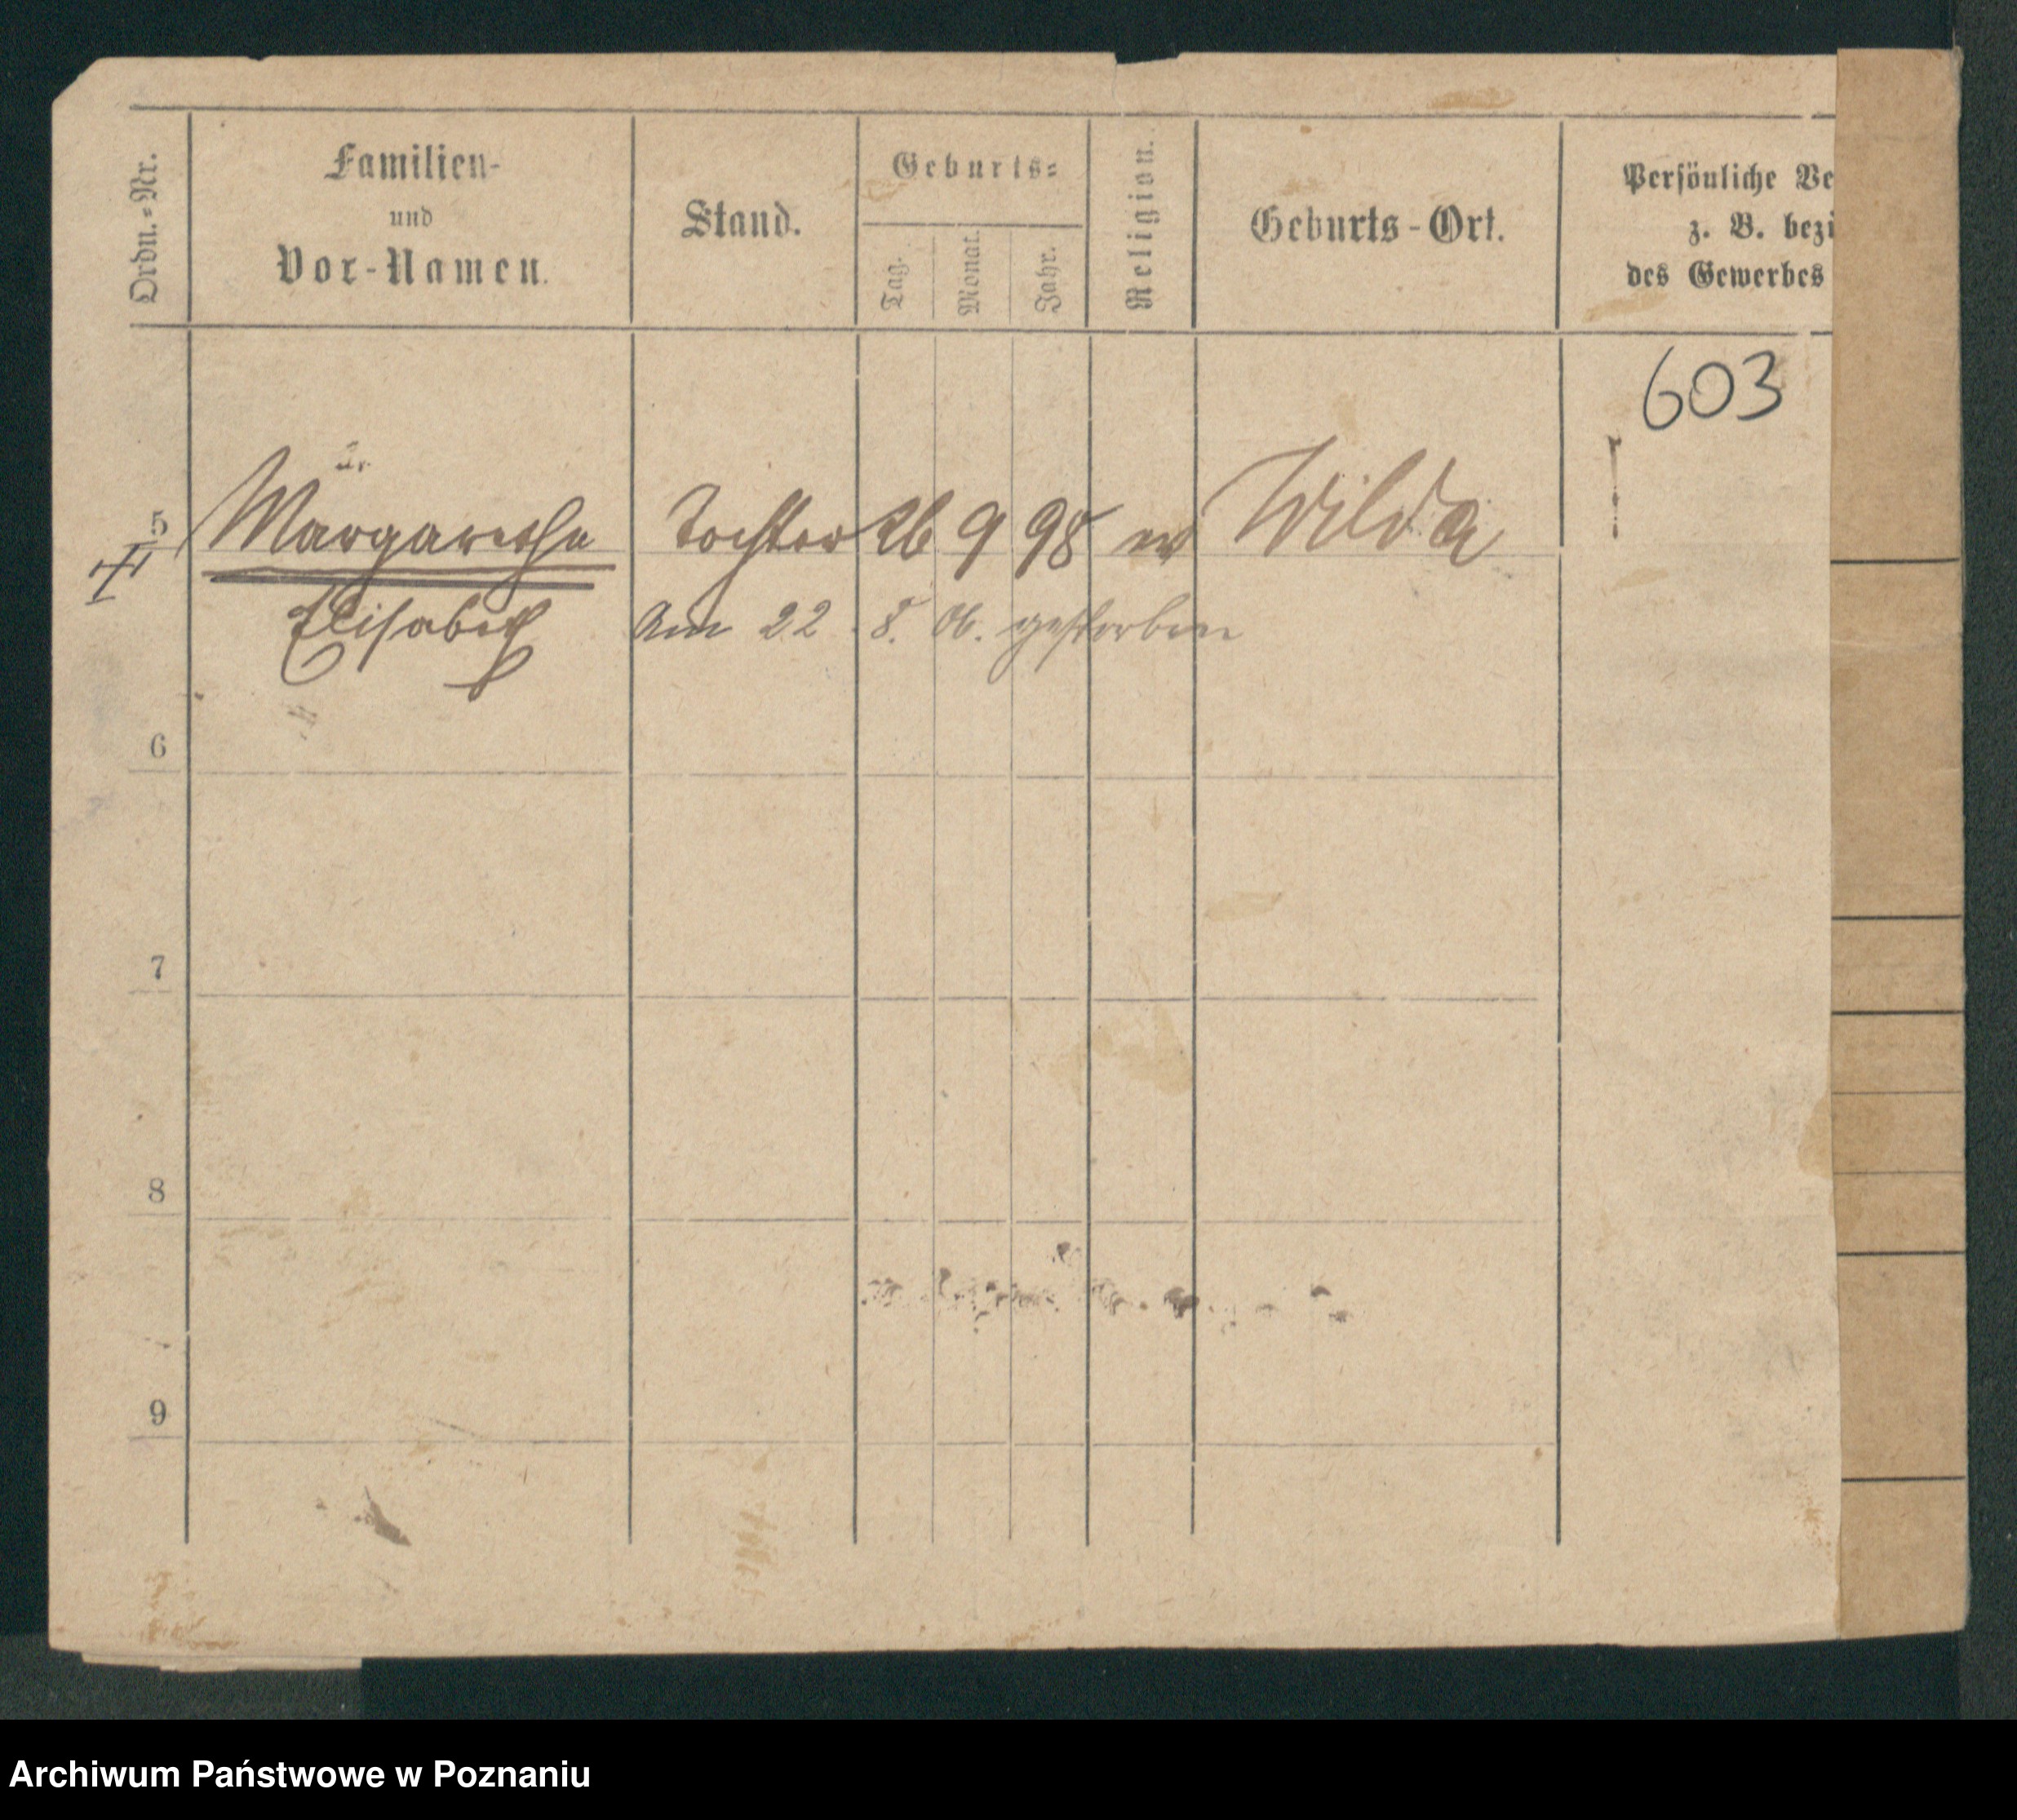 Ordn.=Nr.
Familien-
und
Vor-Namen.
Stand.
Geburts=
Tag.
Monat.
Jahr.
Religion.
Geburts-Ort.
Persönliche Ve
z. B. bezi
des Gewerbes
603
5 Margarethe Tochter 26 9 98 ev Wilda
Elisabeth Am 22. 8. 06. gestorben
6
7
8
9
Archiwum Państwowe w Poznaniu